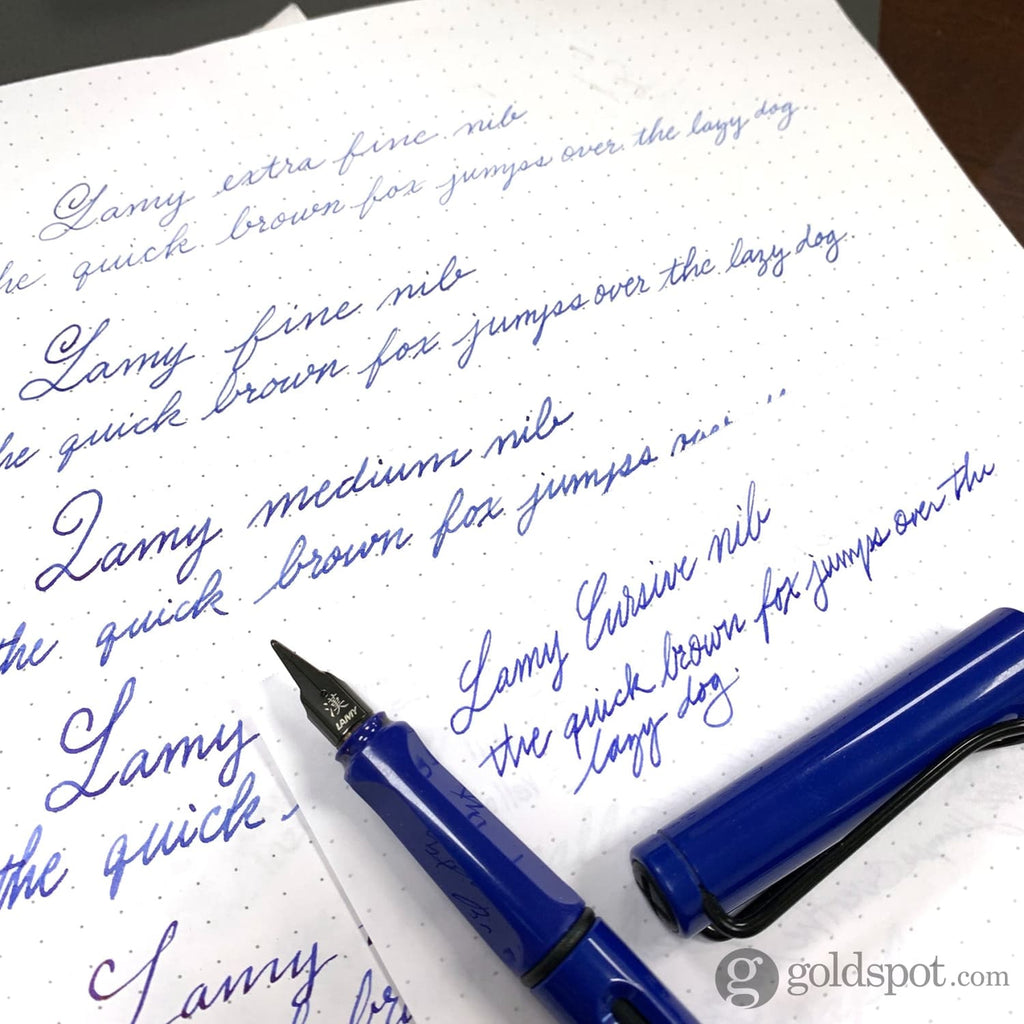 Lamy extra fine nib
he quick brown fox jumps over the lazy dog.
Lamy fine nib
he quick brown fox jumps over the lazy dog.
Lamy medium nib
the quick brown fox jumps
Lamy Cursive nib
the quick brown fox jumps over the
lazy dog.
Lamy
the quick
Lamy
br
漢
LAMY
g goldspot.com